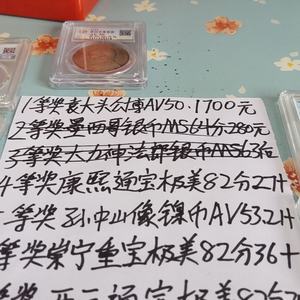 1等奖袁大头公博AV50.1700元
2等奖墨西哥银币MS64分280元
3等奖大力神法郎银币MS63
4等奖康熙通宝极美82分22H
等奖孙中山像镍币AV532H
等奖崇宁重宝极美82分36+
等奖 通宝极美82分